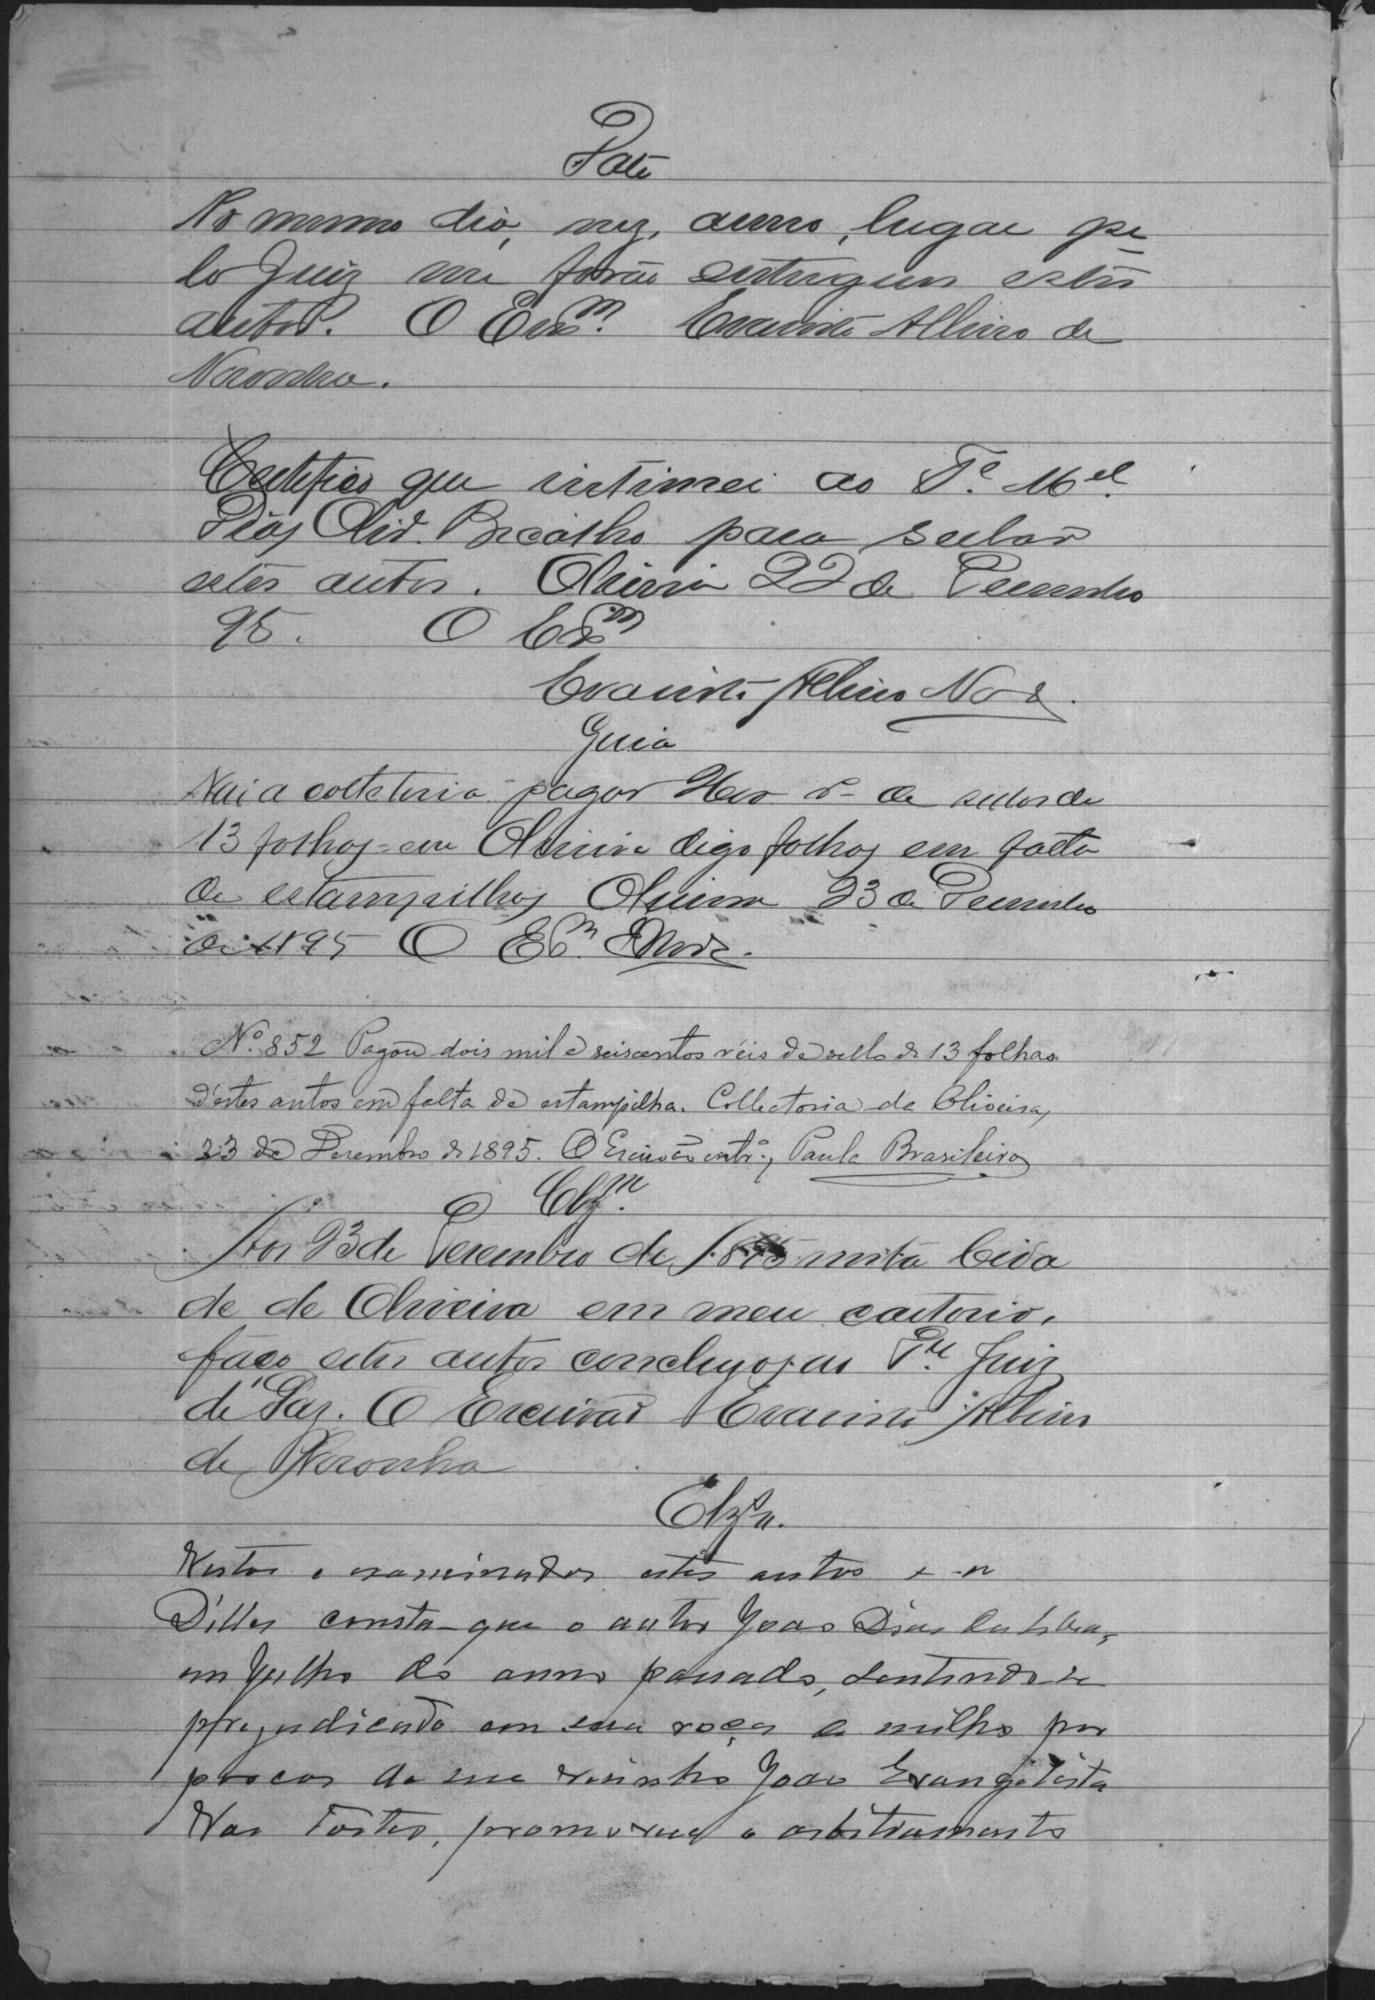 Data
No mesmo dia, mez, anno, lugar pe
lo Juiz me forão entregues estes
autos. O Escm. Evaristo Albino de
Noronha.
Certifico que intimei ao Te. Mel.
Dias Oliv. para sellar
estes autos. Oliveira 22 de Dezembro
95. O Escm
Evaristo Albino Nora.
Guia
Vai a colletoria pagar de sellos de
13 folhas em Oliveira digo folhas em falta
de estampilhas Oliveira 23 de Dezembro
de 1895 O Ecm.
No. 852 Pagou dois mil e seiscentos réis de sello de 13 folhas
d'estes autos em falta de estampilha. Collectoria de Oliveira,
23 de Dezembro de 1895. O Escrivão Paula Brasileiro
Clzm.
Aos 23 de Dezembro de 1895 nesta Cida
de de Oliveira em meu cartorio,
faço estes autos conclusos ao Juiz
de Paz. O Escrivão Evaristo Albino
de Noronha
Clzm.
Vistos e examinados estes autos e
D'elles consta que o autor João Dias
em Julho do anno passado, sentindo-se
prejudicado em sua roça de milho por
porcos de seu visinho João Evangelista
Vas Tostes, promoveu o arbitramento